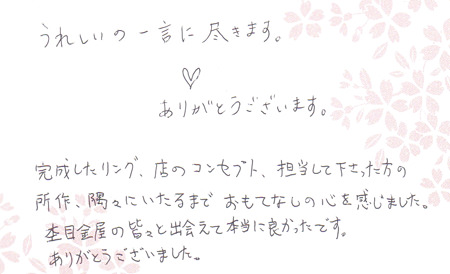 うれしいの一言に尽きます。
♡
ありがとうございます。
完成したリング、店のコンセプト、担当して下さった方の
所作、隅々にいたるまで おもてなしの心を感じました。
杢目金屋の皆々と出会えて本当に良かったです。
ありがとうございました。